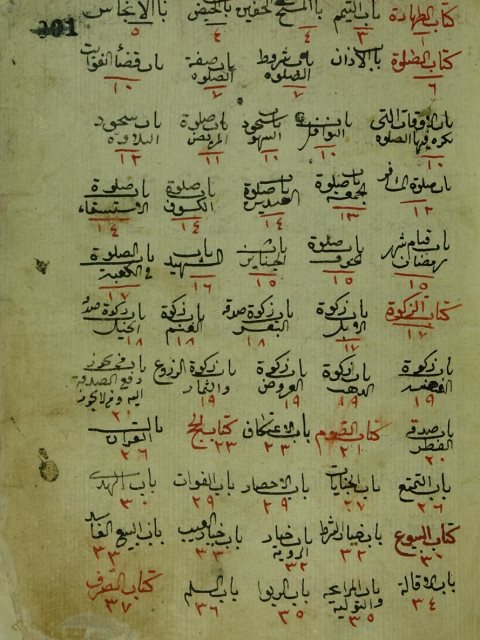 كتاب الطهارة باب التيمم باب المسح الخفين باب الحيض باب الانجاس
٣ ٤ ٤ ٥
كتاب الصلوة باب الاذان باب شروط الصلوة باب صفة الصلوة باب قضاء الفوايت
٦ ٧ ٧ ١٠
باب الاوقات التي تكره فيها الصلوة باب النوافل باب سجود السهو باب صلوة المريض باب سجود التلاوة
١٠ ١٠ ١٠ ١١ ١٢
باب صلوة المسافر باب صلوة الجمعة باب صلوة العيدين باب صلوة الكسوف باب صلوة الاستسقاء
١٢ ١٣ ١٤ ١٤ ١٤
باب قيام شهر رمضان باب صلوة الخوف باب الجنايز باب الشهيد باب الصلوة في الكعبة
١٥ ١٥ ١٥ ١٦ ١٧
كتاب الزكوة باب زكوة الابل باب زكوة صدقة البقر باب زكوة الغنم باب زكوة صدقة الخيل
١٧ ١٧ ١٨ ١٨ ١٨
باب زكوة الفضة باب زكوة الذهب باب زكوة العروض باب زكوة الزروع والثمار باب من يجوز دفع الصدقة اليه ومن لا يجوز
١٩ ١٩ ١٩ ١٩ ٢١
باب صدقة الفطر كتاب الصوم باب الاعتكاف كتاب الحج باب القران
٢٠ ٢١ ٢٣ ٢٣ ٢٦
باب التمتع باب الجنايات باب الاحصار باب الفوات باب الهدى
٢٦ ٢٧ ٢٩ ٢٩ ٣٠
كتاب البيوع باب خيار الشرط باب خيار الروية باب خيار العيب باب البيع الفاسد
٣١ ٣٢ ٣٢ ٣٣ ٣٣
باب الاقالة باب المرابحة والتولية باب الربوا باب السلم كتاب الصرف
٣٤ ٣٥ ٣٥ ٣٦ ٣٧